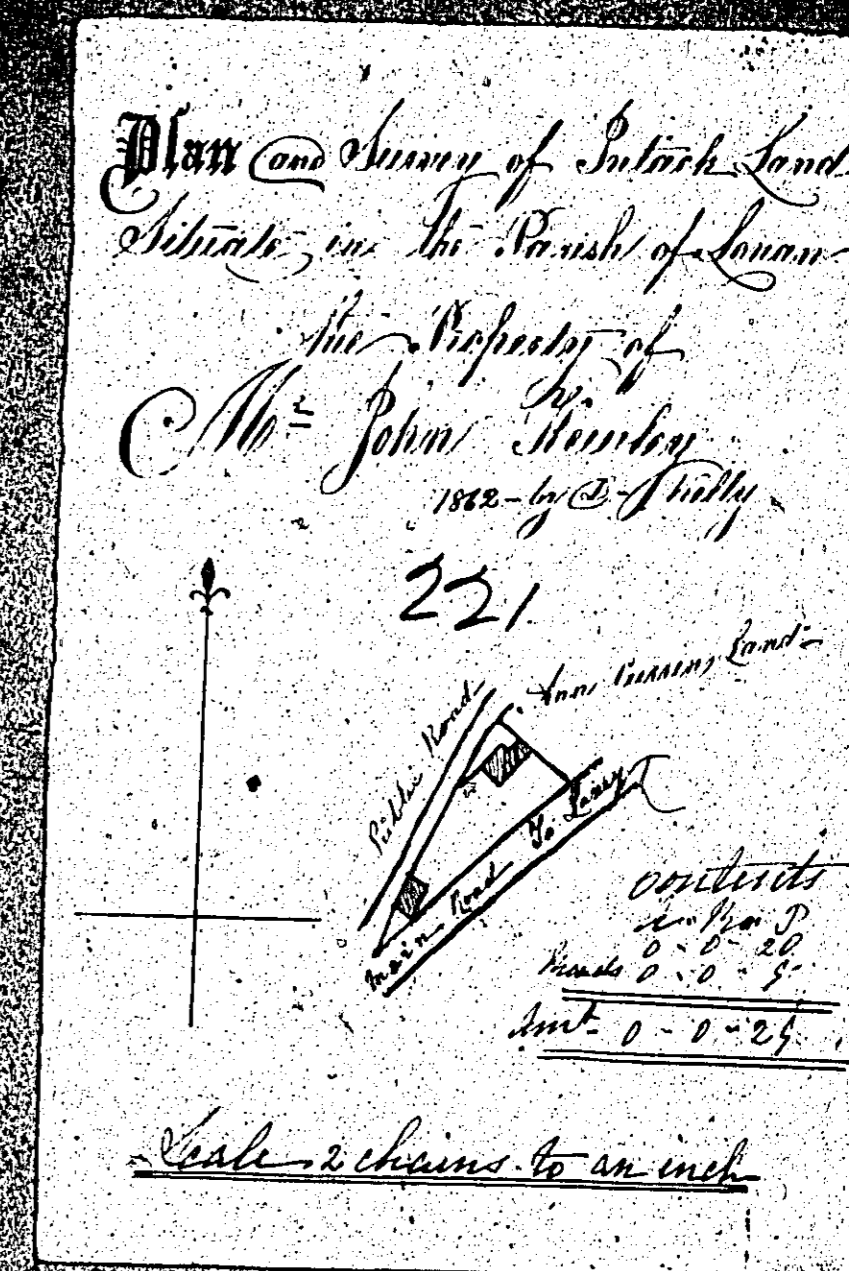 Plan and Survey of Intack Land
Situate in the Parish of Lonan
the Property of
Mr John Kewley
1862 - by
221
Public Road
Land
Main Road To Laxey
contents
0 - 0 - 20
Roads 0 - 0 - 5
Amt 0 - 0 - 25
Scale 2 chains to an inch